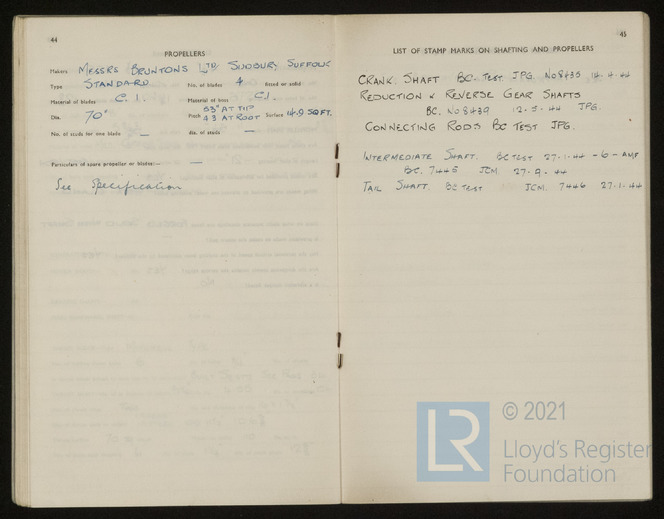 44
PROPELLERS
Makers MESSRS BRUNTONS LTD SUDBURY, SUFFOLK
Type STANDARD No. of blades 4 fitted or solid
Material of blades C.I. Material of boss C.I.
Dia. 70" Pitch 53" AT TIP 43 AT ROOT Surface 14.9 SQ FT.
No. of studs for one blade — dia. of studs —
Particulars of spare propeller or blades:— —
See Specification
45
LIST OF STAMP MARKS ON SHAFTING AND PROPELLERS
CRANK SHAFT BC TEST JPG No 8435 14-4-44
REDUCTION & REVERSE GEAR SHAFTS
BC. No 8439 12-5-44 JPG.
CONNECTING RODS BC TEST JPG.
INTERMEDIATE SHAFT. BC TEST 27-1-44 -6-
BC. 7445 JCM. 27-9-44
TAIL SHAFT. BC TEST JCM. 7446 27-1-44
LR © 2021
Lloyd's Register
Foundation